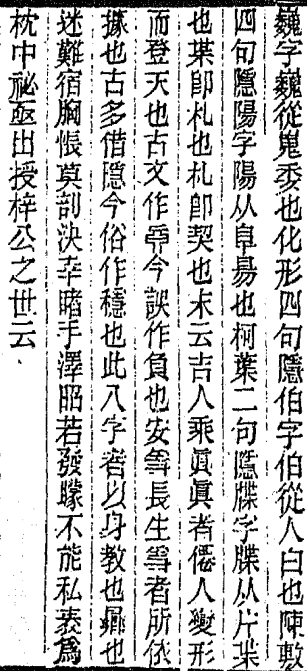 巍字巍從嵬委也化形四句隱伯字伯從人白也陳敷
四句隱陽字陽从阜昜也柯葉二句隱牒字牒从片枼
也枼卽札也札卽契也末云吉人乘眞眞者僊人變形
而登天也古文作𠄌今誤作負也安𤔌長生𤔌者所依
據也古多借隱今俗作穩也此八字者以身教也彛也
迷難宿胸悵莫剖決幸睹手澤昭若發矇不能私袠爲
枕中祕亟出授梓公之世云